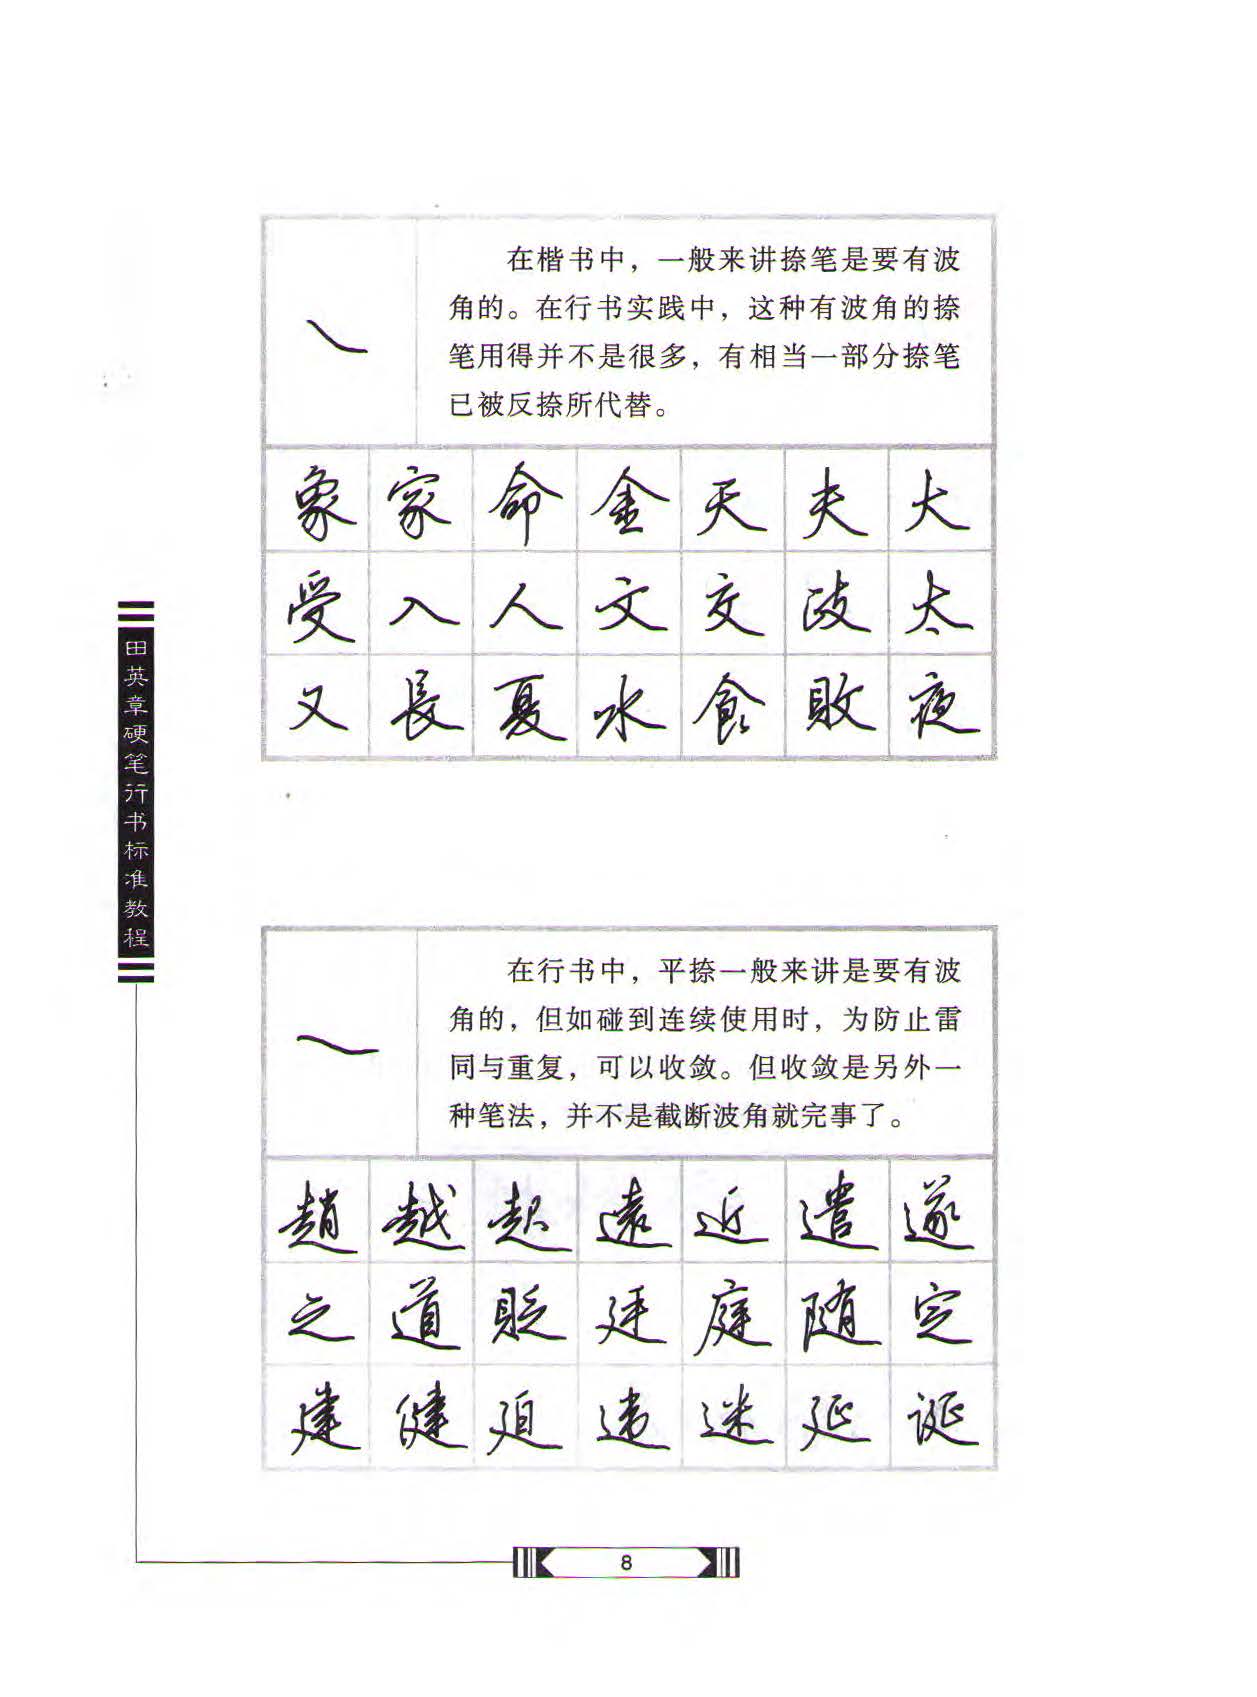 在楷书中，一般来讲捺笔是要有波
角的。在行书实践中，这种有波角的捺
笔用得并不是很多，有相当一部分捺笔
已被反捺所代替。
象家命金天夫大
受入人文交歧太
又長夏水食敗夜
田英章硬笔行书标准教程
在行书中，平捺一般来讲是要有波
角的，但如碰到连续使用时，为防止雷
同与重复，可以收敛。但收敛是另外一
种笔法，并不是截断波角就完事了。
趙越起遠近遣遂
之道貶廷庭随定
建健迫违迷延誕
8